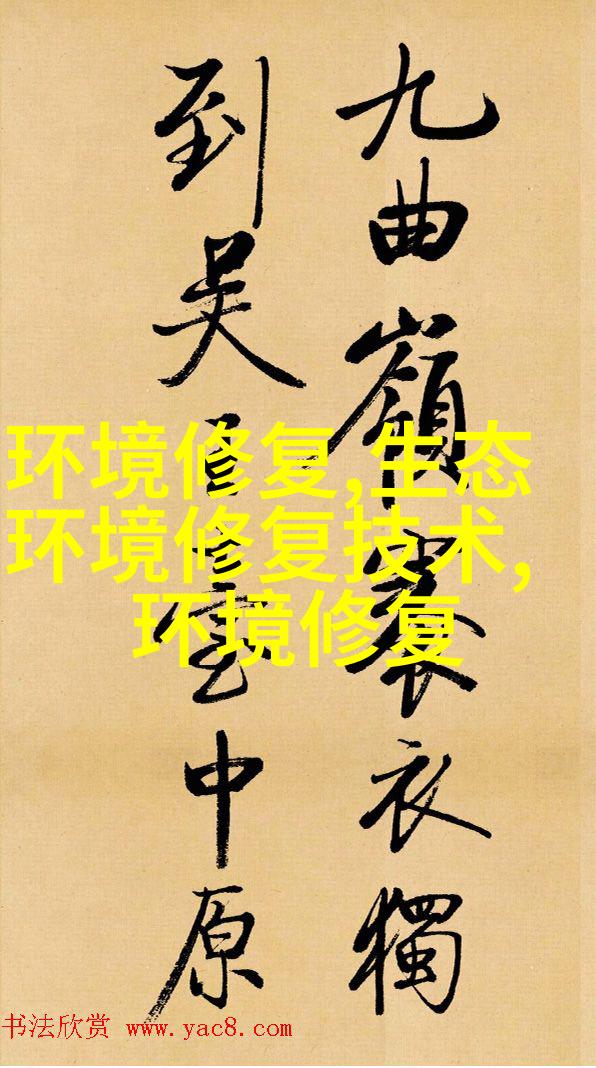 九曲嶺衣獨
到吴中原
环境修复,生态
环境修复技术,
环境修复
书法欣赏 www.yac8.com